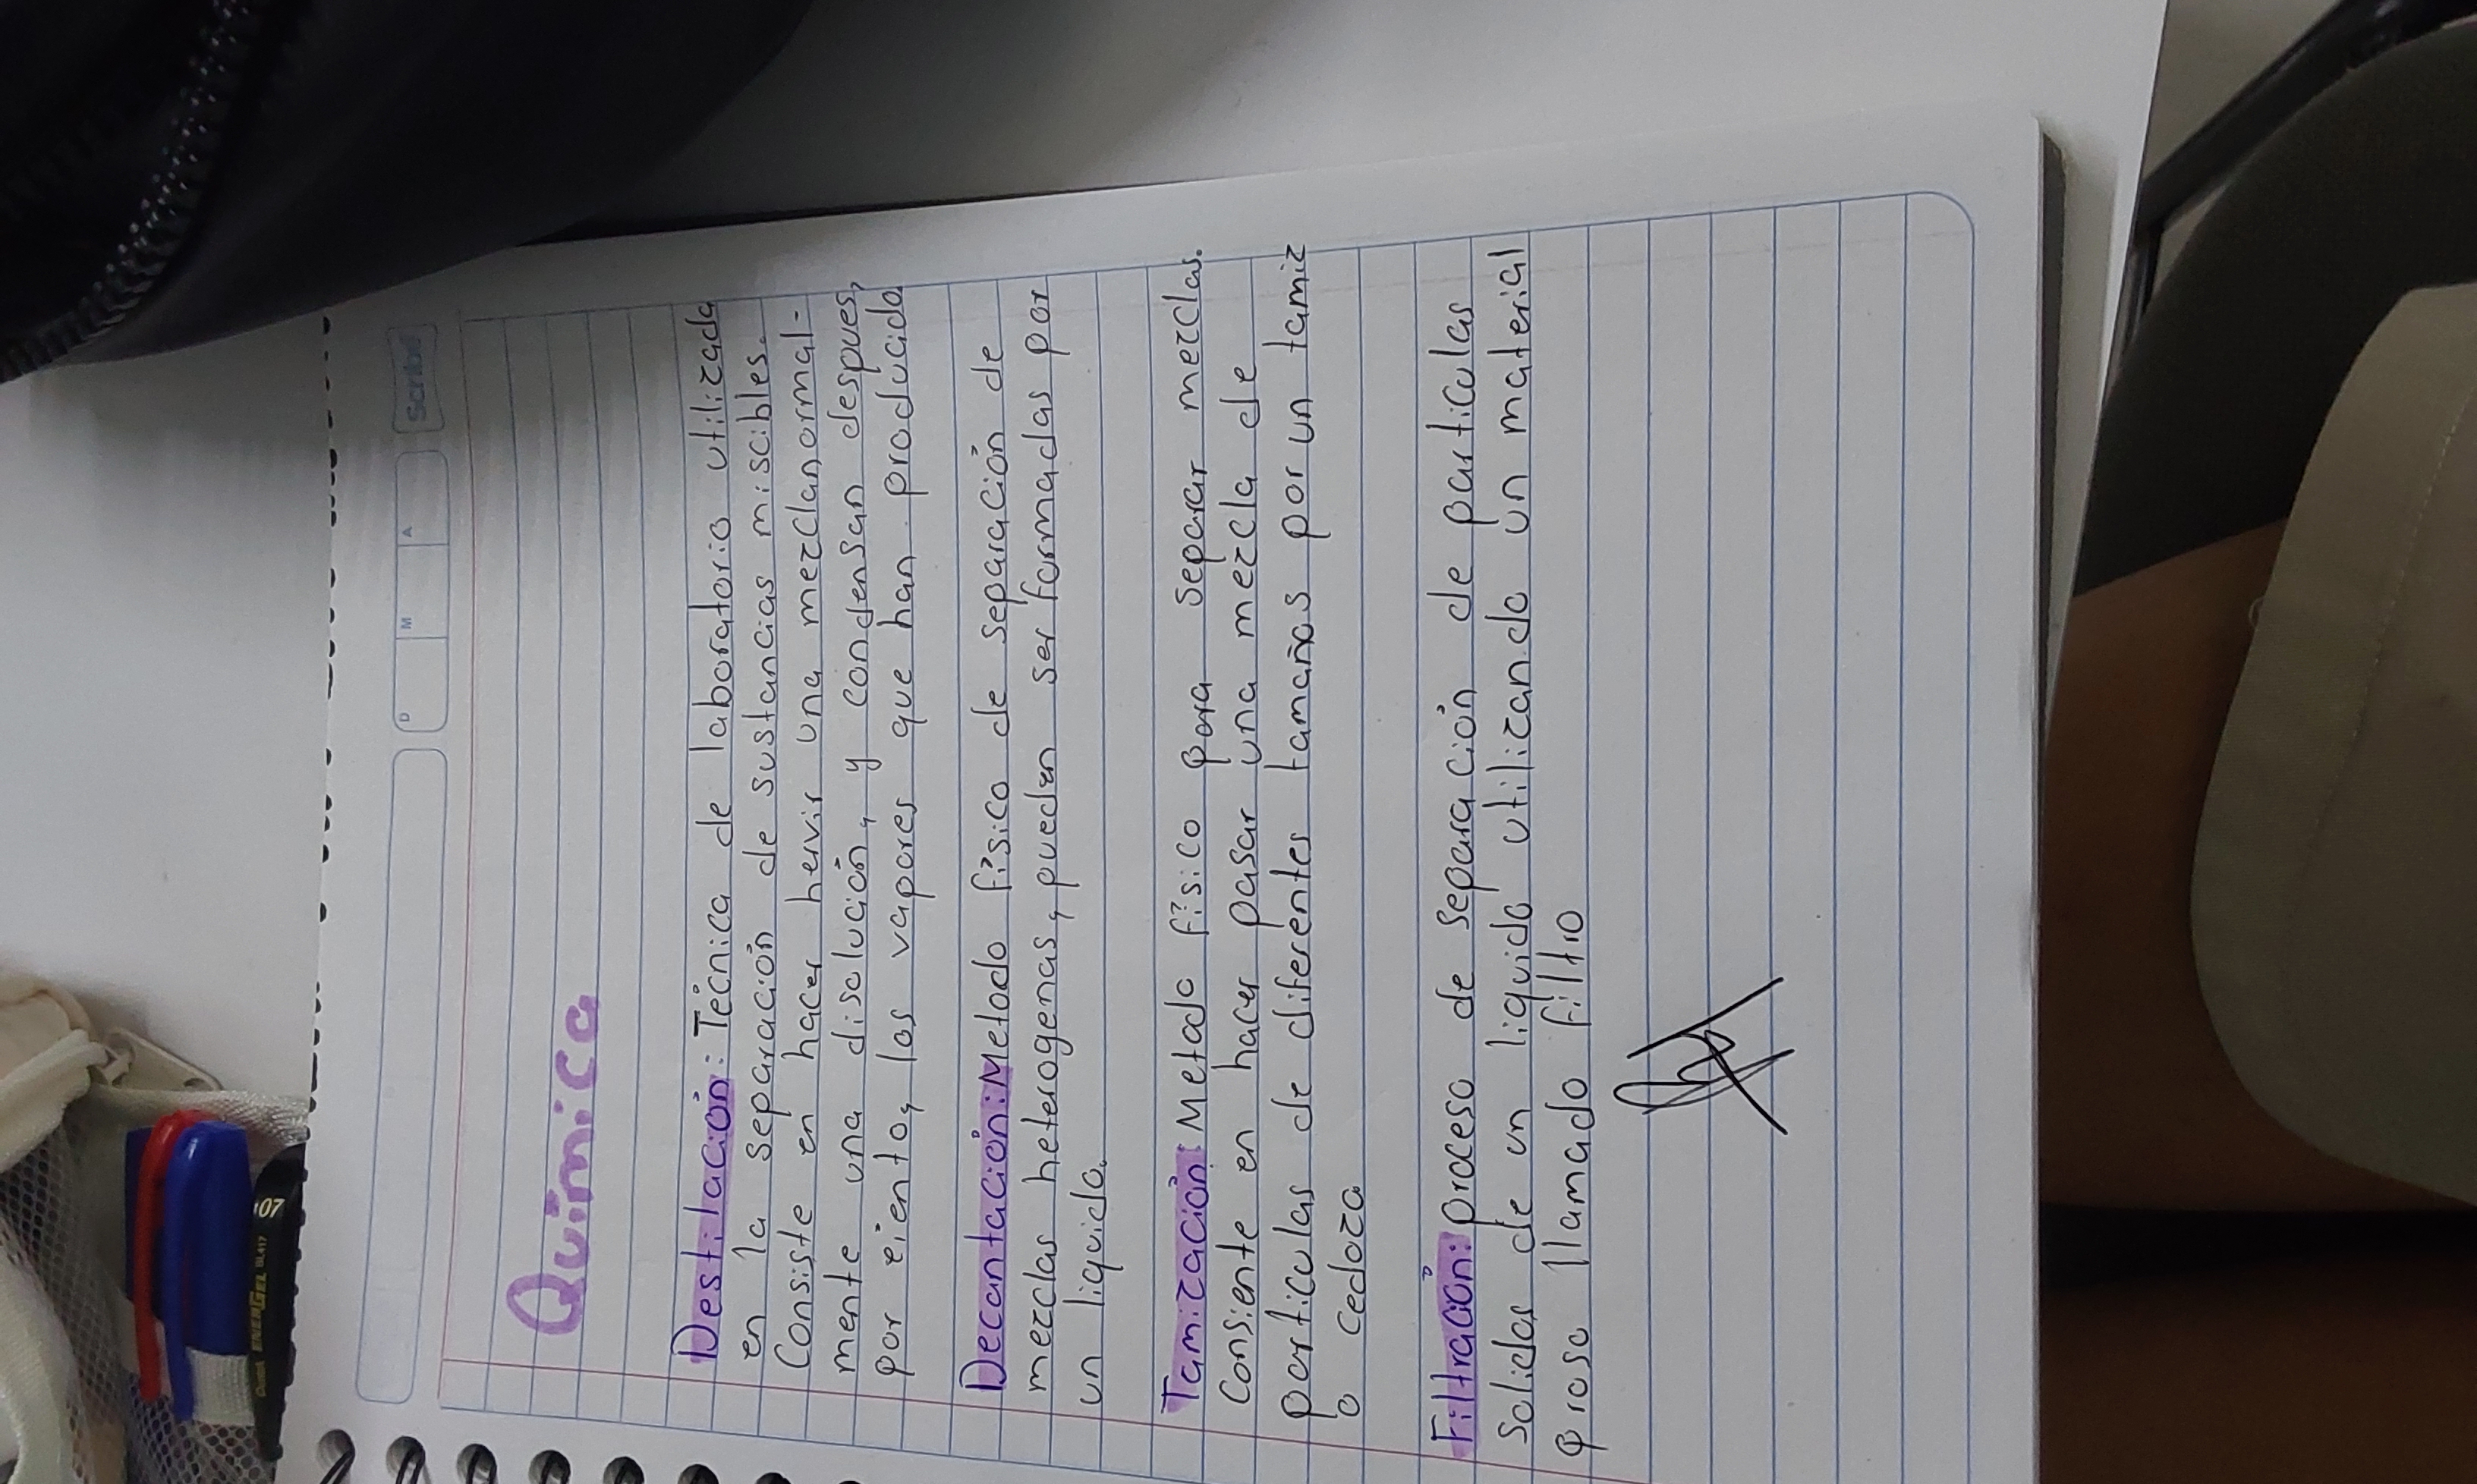 Scribe
D M A
Química
Destilación: Técnica de laboratorio utilizada
en la separación de sustancias miscibles.
Consiste en hacer hervir una mezclanormal-
mente una disolución, y condensan despues,
por eiento, los vapores que han producido
Decantación: Metodo físico de separación de
mezclas heterogenas, pueden ser formadas por
un liquido.
Tamización: Metodo físico para separar mezclas.
Consiente en hacer pasar una mezcla de
particulas de diferentes tamaños por un tamiz
o cedazo
Filtración: proceso de separación de particulas
solidas de un liquido utilizando un material
proso llamado filtro
Pentel ENERGEL BL417 07